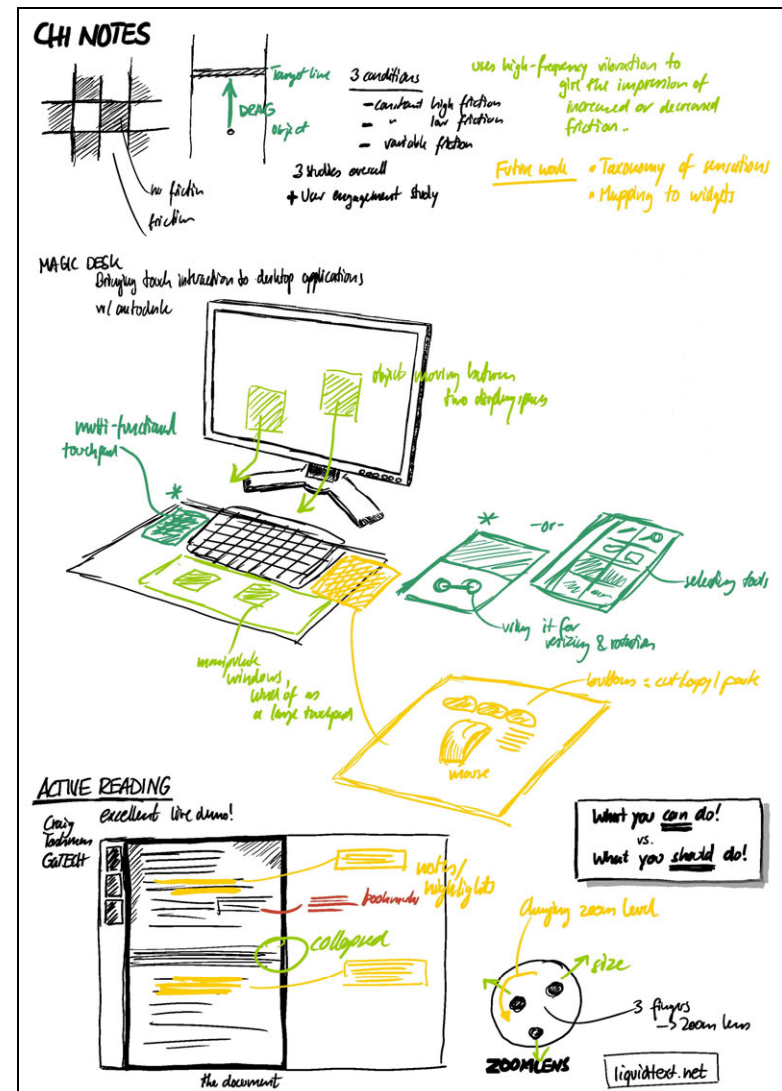 CHI NOTES
Target line
DRAG
object
no friction
friction
3 conditions
- constant high friction
- " low friction
- variable friction
3 studies overall
+ User engagement study
uses high-frequency vibration to
give the impression of
increased or decreased
friction.
Future work • Taxonomy of sensations
• Mapping to widgets
MAGIC DESK
Bringing touch interaction to desktop applications
w/ autodesk
objects moving between
two display spaces
multi-functional
touchpad
*
*
-or-
selecting tools
using it for
resizing & rotation
manipulate
windows,
kind of as
a large touchpad
buttons = cut/copy/paste
mouse
ACTIVE READING
excellent live demo!
Craig
Tashman
GaTECH
notes/
highlights
bookmarks
collapsed
the document
What you can do!
vs.
What you should do!
Changing zoom level
size
3 fingers
→ zoom lens
ZOOMLENS
liquidtext.net